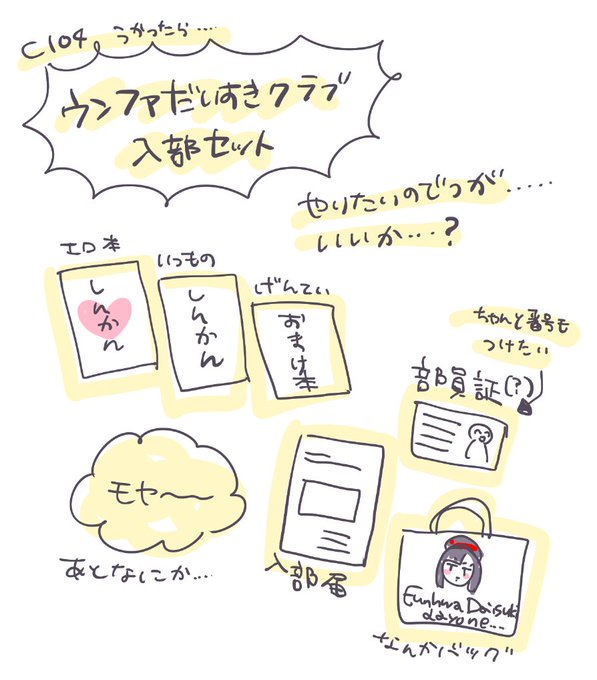 C104 うかったら....
ウンファだいすきクラブ
入部セット
やりたいのでつが.....
いいいか...?
エロ本
しんかん
いつもの
しんかん
げんてい
おまけ本
ちゃんと番号も
つけたい
部員証(?)
モヤ〜〜
あとなにか....
入部届
Eunhwa Daisuki
dayone...
なんかバッグ